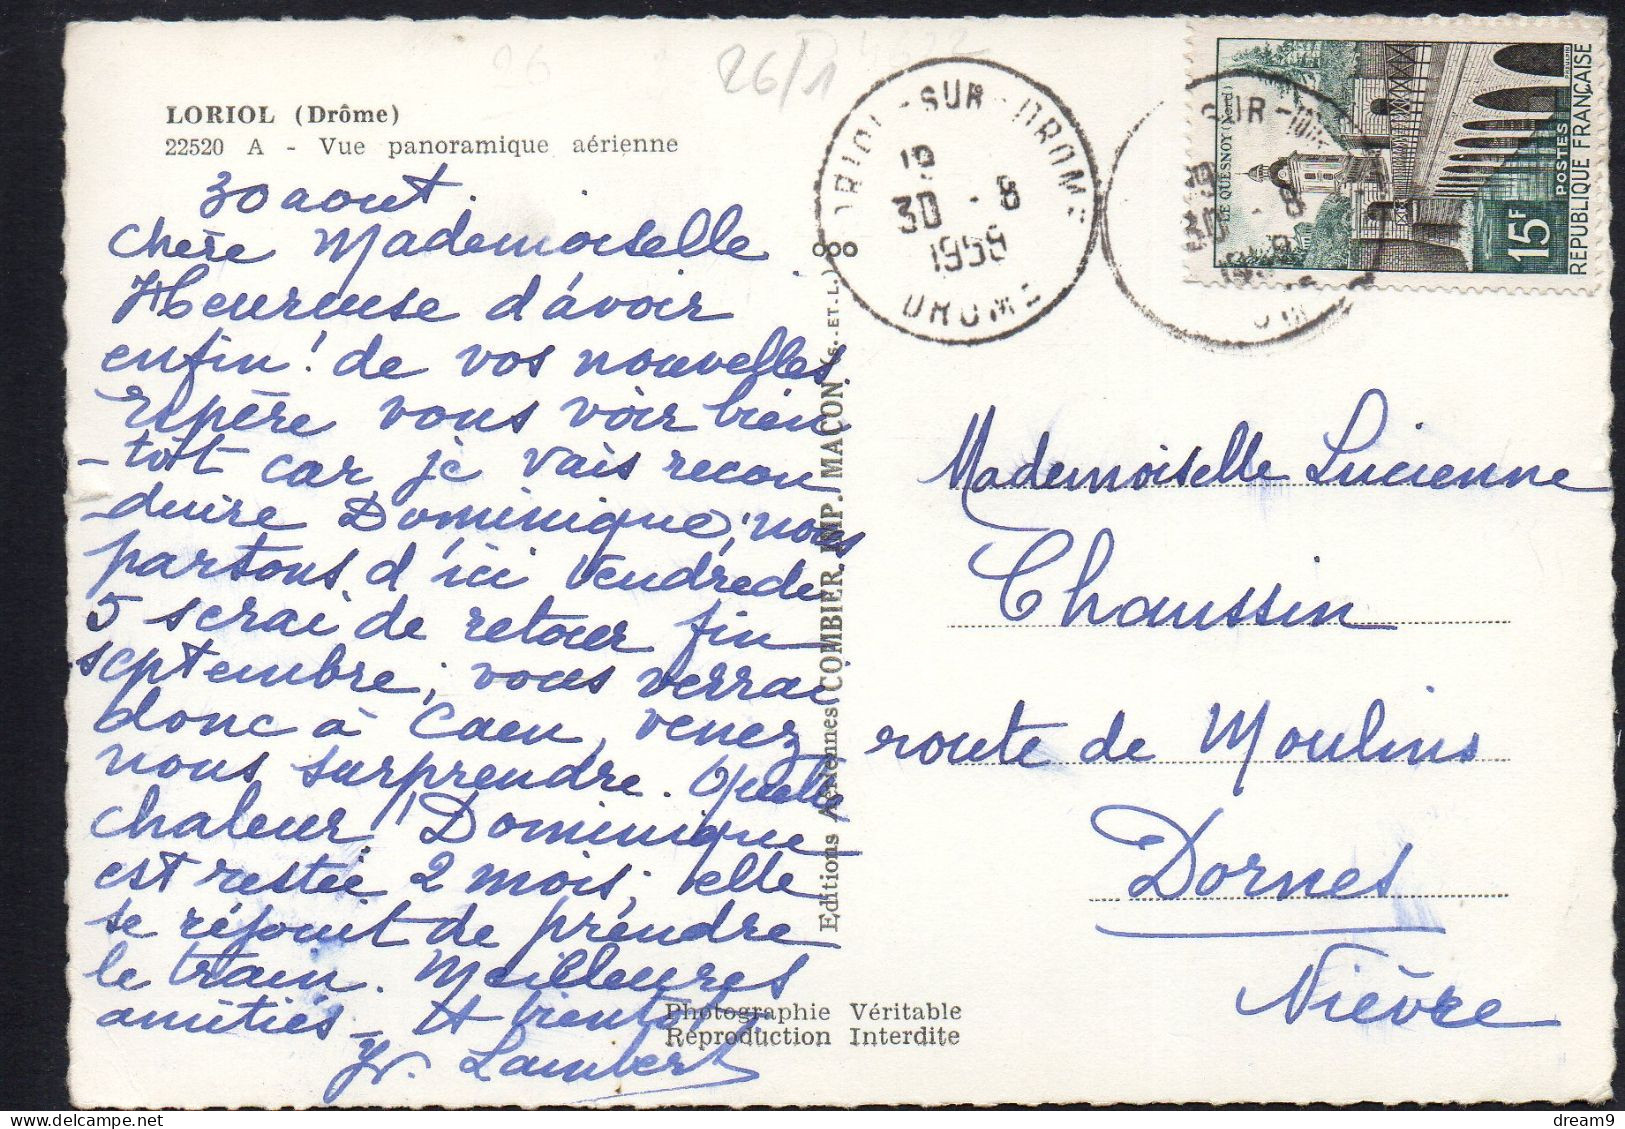 LORIOL (Drôme)
22520 A - Vue panoramique aérienne
26
26/1
30 aout.
Chère Mademoiselle
Heureuse d'avoir
enfin! de vos nouvelles
espère vous voir bien
-tôt car je vais recon
-duire Dominique, nous
partons d'ici Vendrede
5 serai de retour fin
septembre, vous verrai
donc à Caen, venez
nous surprendre. Quelle
chaleur! Dominique
est restée 2 mois; elle
se réjouit de prendre
le train. Meilleures
amitiés - A bientôt
Y. Lambert
Editions Aériennes COMBIER, IMP. MACON (S.-ET-L.)
Photographie Véritable
Reproduction Interdite
LORIOL-SUR-DROME
30 - 8
1958
DROME
SUR-DROME
19
30 - 8
LE QUESNOY (Nord)
POSTES
15F
REPUBLIQUE FRANÇAISE
Mademoiselle Lucienne
Chaussin
route de Moulins
Dornes
Nièvre